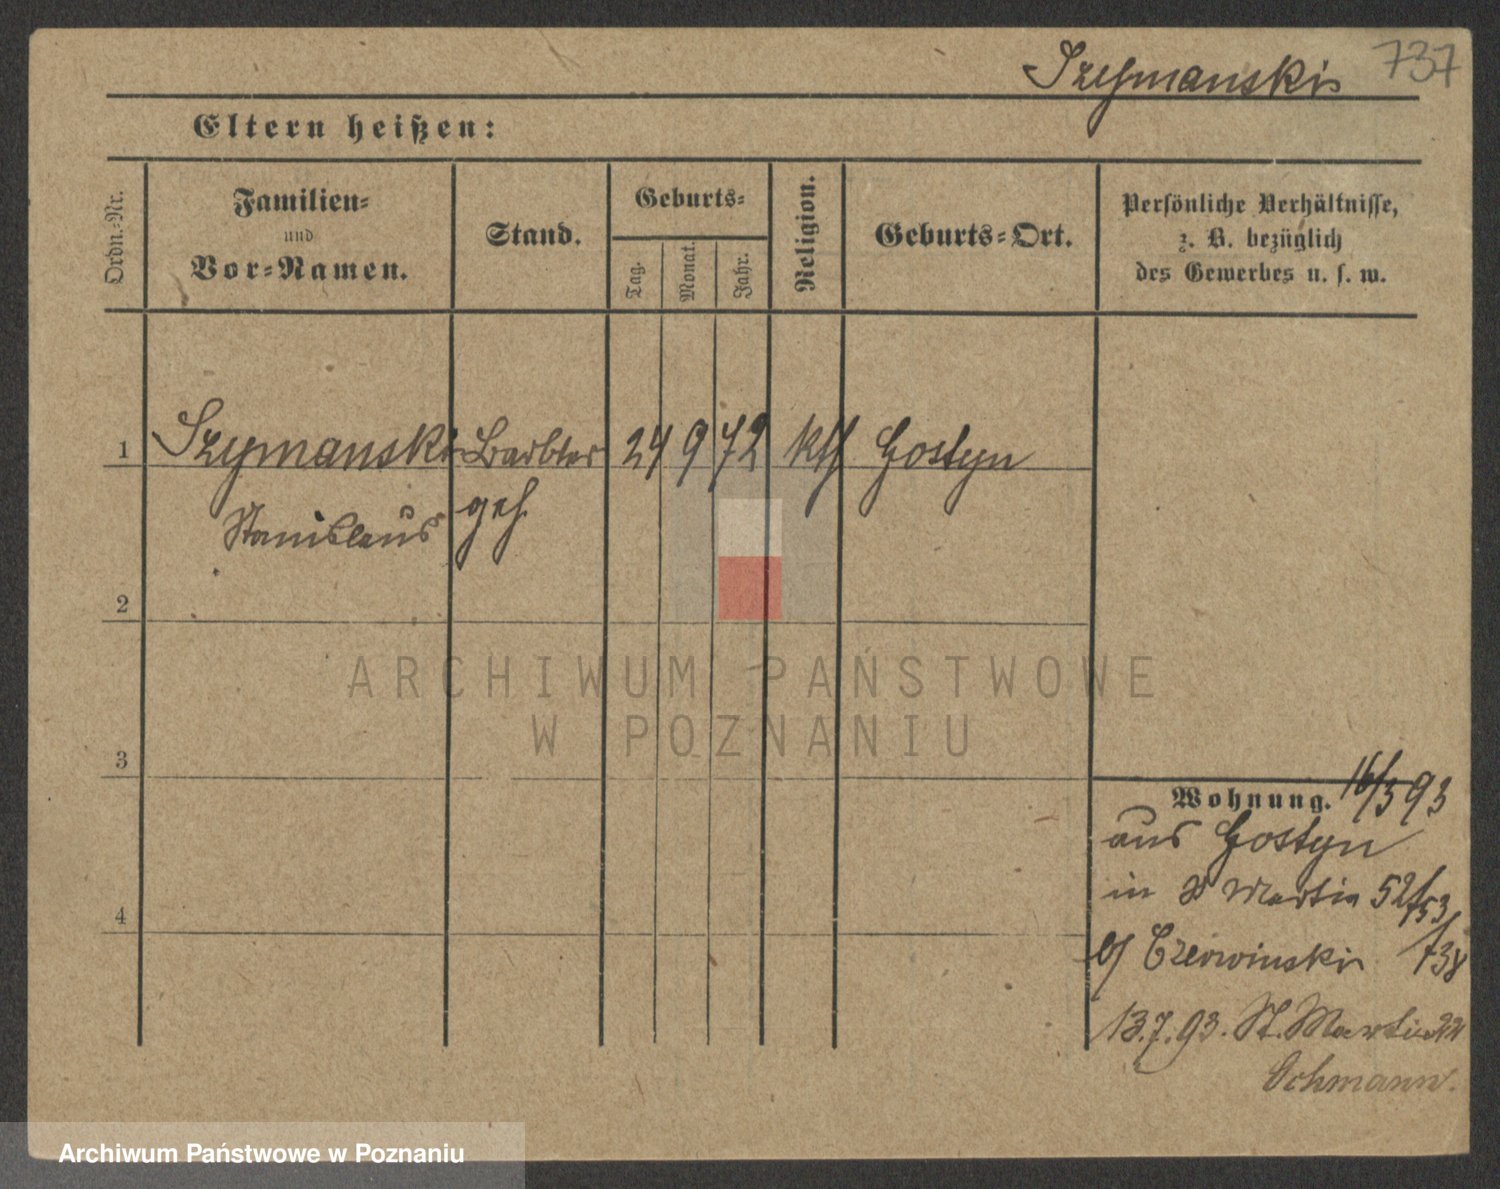 Szymanski
737
Eltern heißen:
Ordn.-Nr.
Familien-
und
Vor-Namen.
Stand.
Geburts-
Tag.
Monat.
Jahr.
Religion.
Geburts-Ort.
Persönliche Verhältnisse,
z. B. bezüglich
des Gewerbes u. s. w.
1 Szymanski Barbier 24 9 72 kth Gostyn
Stanislaus geh
2
3
4
Wohnung. 16/3 93
aus Gostyn
in St Martin 52/53
b/ Czerwinski 738
13.7.93. St. Martin 22
Ochmann.
ARCHIWUM PAŃSTWOWE
W POZNANIU
Archiwum Państwowe w Poznaniu